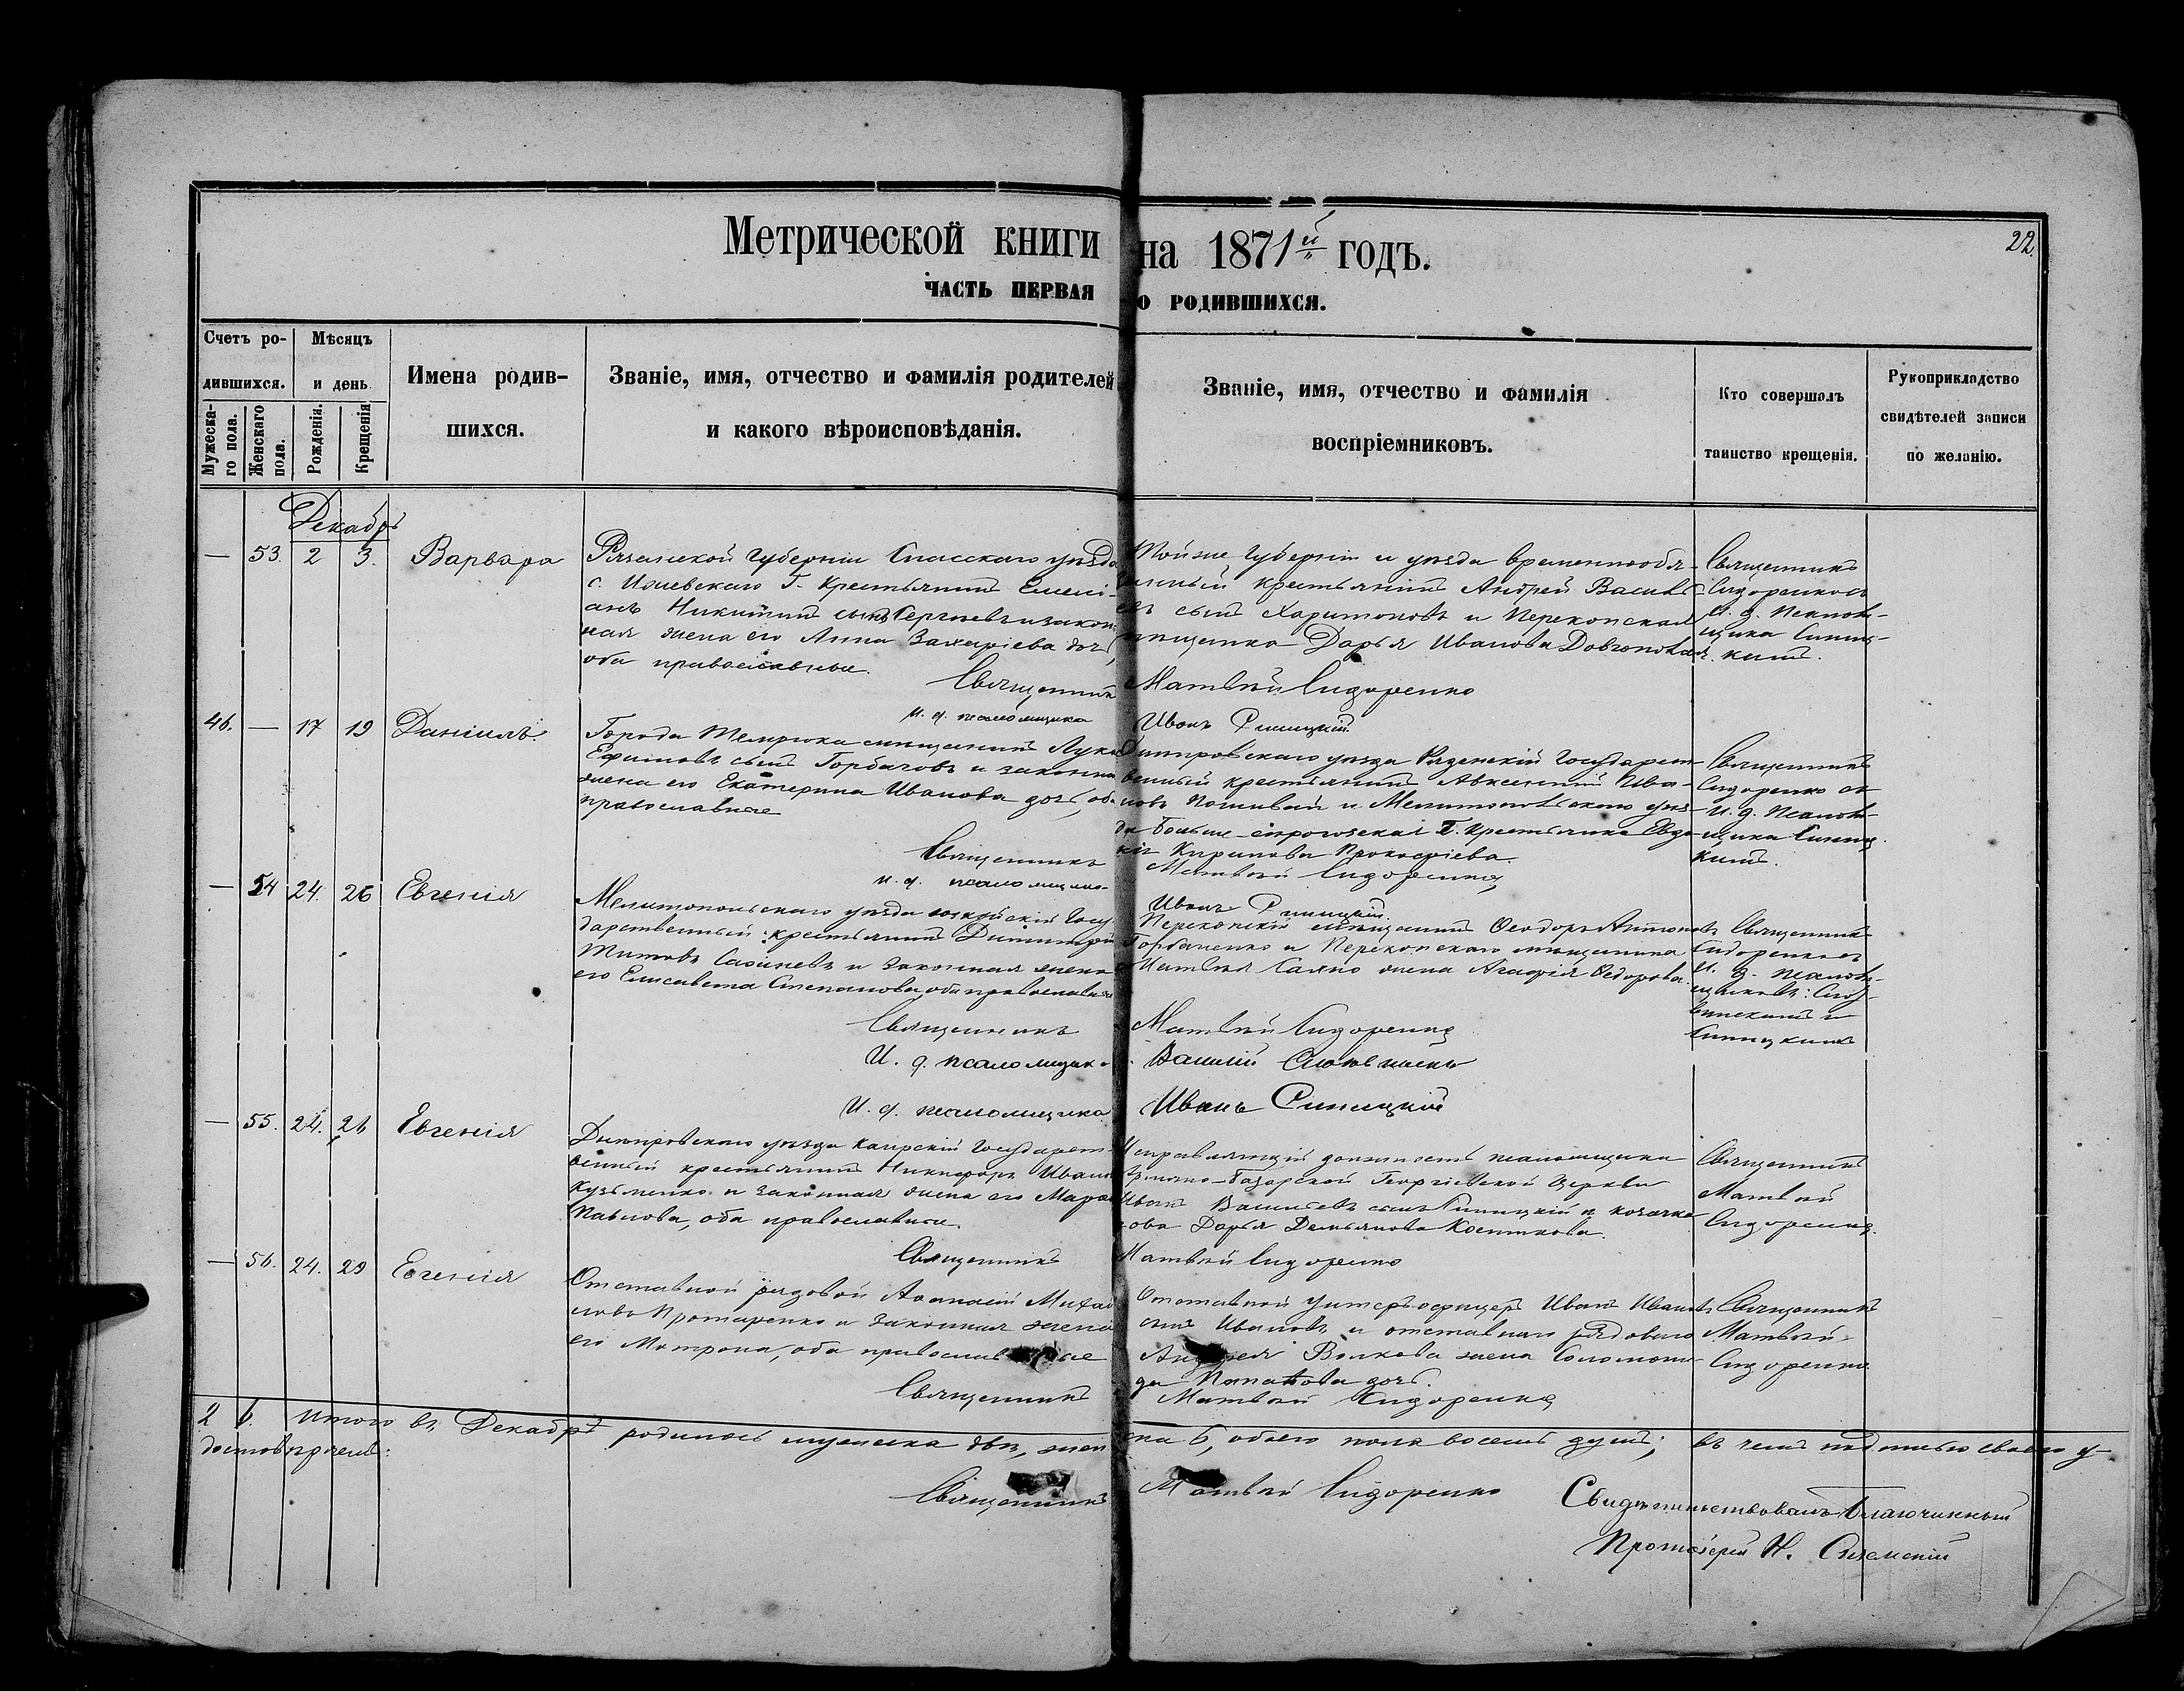 Метрической книги на 1871й годъ.
22.
ЧАСТЬ ПЕРВАЯ О РОДИВШИХСЯ.
Счетъ ро-
дившихся.
Мужеска-
го пола.
Женскаго
пола.
Мѣсяцъ
и день
Рожденія.
Крещенія
Имена родив-
шихся.
Званіе, имя, отчество и фамилія родителей
и какого вѣроисповѣданія.
Званіе, имя, отчество и фамилія
воспріемниковъ.
Кто совершалъ
таинство крещенія.
Рукоприкладство
свидѣтелей записи
по желанію.
Декабрь
— 53. 2 3. Варвара
Рязанской Губерніи Спасскаго уѣзда
с. Ижевскаго Г. крестьянинъ Емелі-
анъ Никитинъ сынъ Сергѣевъ и закон
ная жена его Анна Захаріева дочь,
оба православные.
Той же Губерніи и уѣзда временнообя-
занный крестьянинъ Андрей Василь
евъ сынъ Харитоновъ и Перекопская
мѣщанка Дарья Иванова
Священникъ
Сидоренко съ
И. д. Псалом-
щика Синиц-
кимъ.
Священникъ Матвѣй Сидоренко
И. д. псаломщика Иванъ Синицкій
46. — 17 19 Даніилъ.
Города Темрюка мѣщанинъ Лука
Ефимовъ сынъ Горбачовъ и законная
жена его Екатерина Иванова дочь, оба
православные
Днѣпровскаго уѣзда Государст-
венный крестьянинъ Авксентій Ива-
новъ и Мелитопольскаго уѣз-
да крестьянка Евдо-
кія Кирилова Прокофіева.
Священникъ
Сидоренко съ
И. д. Псалом-
щика Синиц
кимъ.
Священникъ Матвѣй Сидоренко
и. д. псаломщика Иванъ Синицкій.
— 54 24. 26 Евгенія
Мелитопольскаго уѣзда Госу
дарственный крестьянинъ Димитрій
Титовъ и законная жена
его Елисавета Степанова, оба православные
Перекопскій мѣщанинъ Ѳеодоръ Антоновъ
Горбаченко и Перекопскаго мѣщанина
Матвѣя жена Агафія Ѳедорова.
Священникъ
Сидоренко съ
И. д. псалом-
щиковъ:
и
Синицкимъ
Священникъ Матвѣй Сидоренко
И. д. псаломщика Василій
И. д. псаломщика Иванъ Синицкій
— 55. 24. 26 Евгенія
Днѣпровскаго уѣзда Каирскій Государст-
венный крестьянинъ Никифоръ Иванов
Кузьменко и законная жена его Марфа
Павлова, оба православные.
Исправляющій должность псаломщика
Армяно-Базарской Георгіевской Церкви
Иванъ Васильевъ сынъ Синицкій и козачка
Дарья Демьянова
Священникъ
Матвѣй
Сидоренко.
Священникъ Матвѣй Сидоренко
— 56. 24. 29 Евгенія
Отставной рядовой Аѳанасій Михай
ловъ Протаренко и законная жена
его Матрона, оба православные
Отставной Унтеръ-офицеръ Иванъ Ивановъ
сынъ Ивановъ и отставнаго рядоваго
Андрея Волкова жена Соломони-
да дочь.
Священникъ
Матвѣй
Сидоренко
Священникъ Матвѣй Сидоренко
2 6. Итого въ Декабрѣ родилось мужеска два, женска 6, обоего пола восемь душъ; въ чемъ подписью своею у-
достовѣряемъ:
Священникъ Матвѣй Сидоренко
Свидѣтельствовалъ Благочинный
Протоіерей Н.